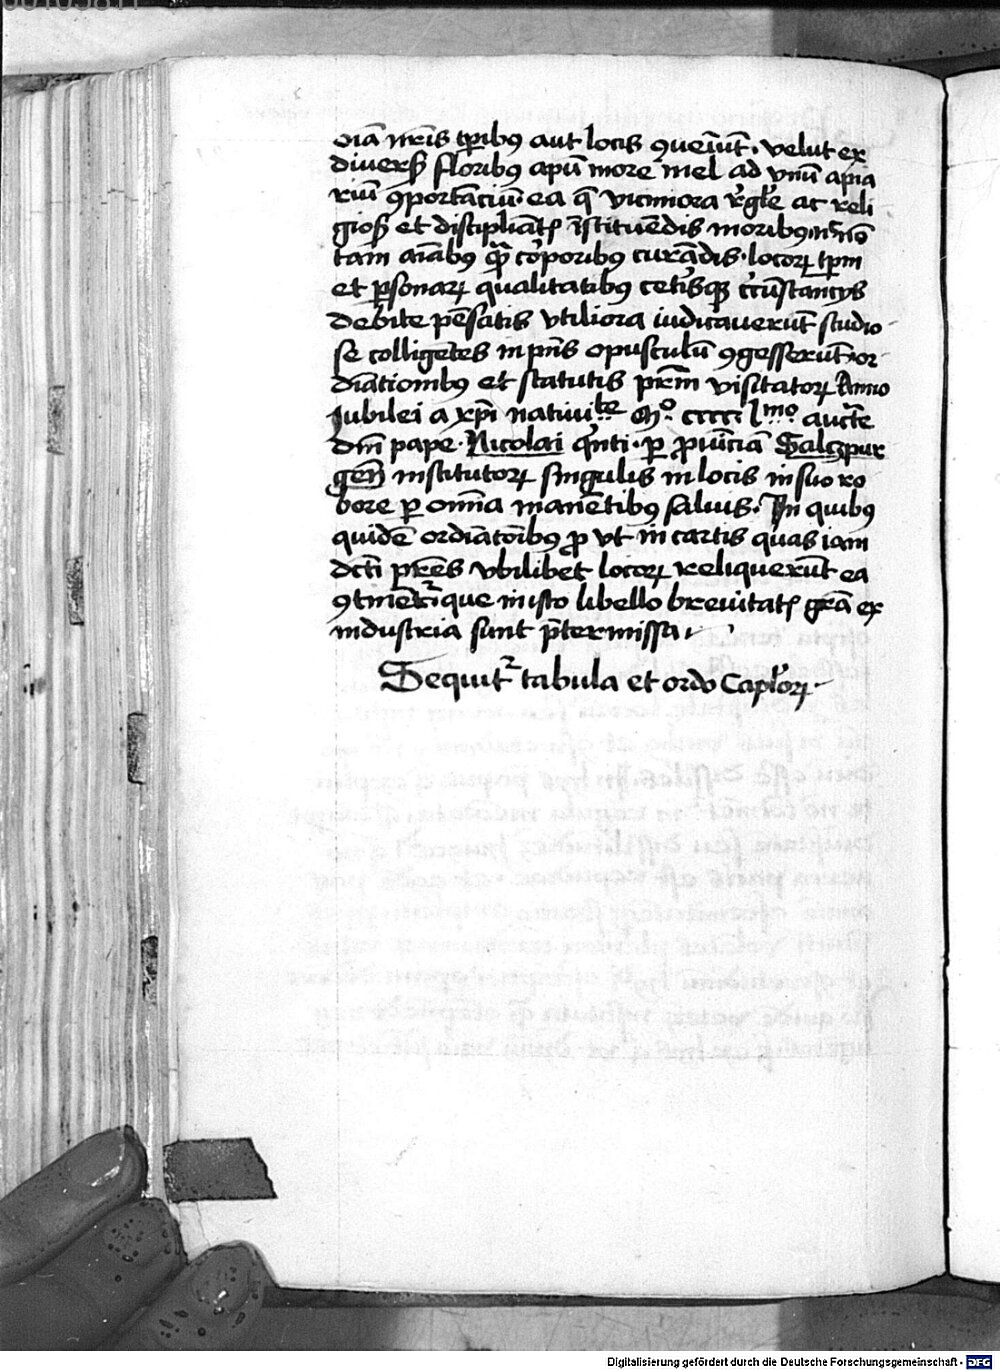 oīa nr̄is tp̄ribꝫ aut locis ꝯueīūt. velut ex
diuersꝭ floribꝫ apū more mel ad vnū apia
riū ꝯportanciū ea q̄ viciniora r̄gl̄e ac reli
giosꝭ et
tam aīabꝫ qͣꝫ corporibꝫ curādis. locoꝝ tp̄m
et ꝑsonaꝝ qualitatibꝫ cetīsqꝫ circūstancijs
debite pēsatis vtiliora iudicauerūt studio
se colligētes in pn̄s opusculū ꝯgesserūt. or
diātionibꝫ et statutis pr̄m visitatoꝝ Anno
Jubilei a xp̄i natiuite Mo ccccc lmo aucte
dn̄i pape. Nicolai qͥnti. ꝑ ꝓuīciā Salczpur
gen̄ institutoꝝ singulis in locis in suo ro
bore ꝑ omīa manētibꝫ saluis. In quibꝫ
quidē ordiātōibꝫ ꝓ vt in cartis quas iam
dc̄ti pr̄es vbilibet locoꝝ reliquerūt ea
ꝯtinētr̄ que in isto libello breuitatꝭ gr̄a ex
industria sunt p̄termissa.
Sequitr tabula et ordo Capl̄oꝝ
Digitalisierung gefördert durch die Deutsche Forschungsgemeinschaft - DFG